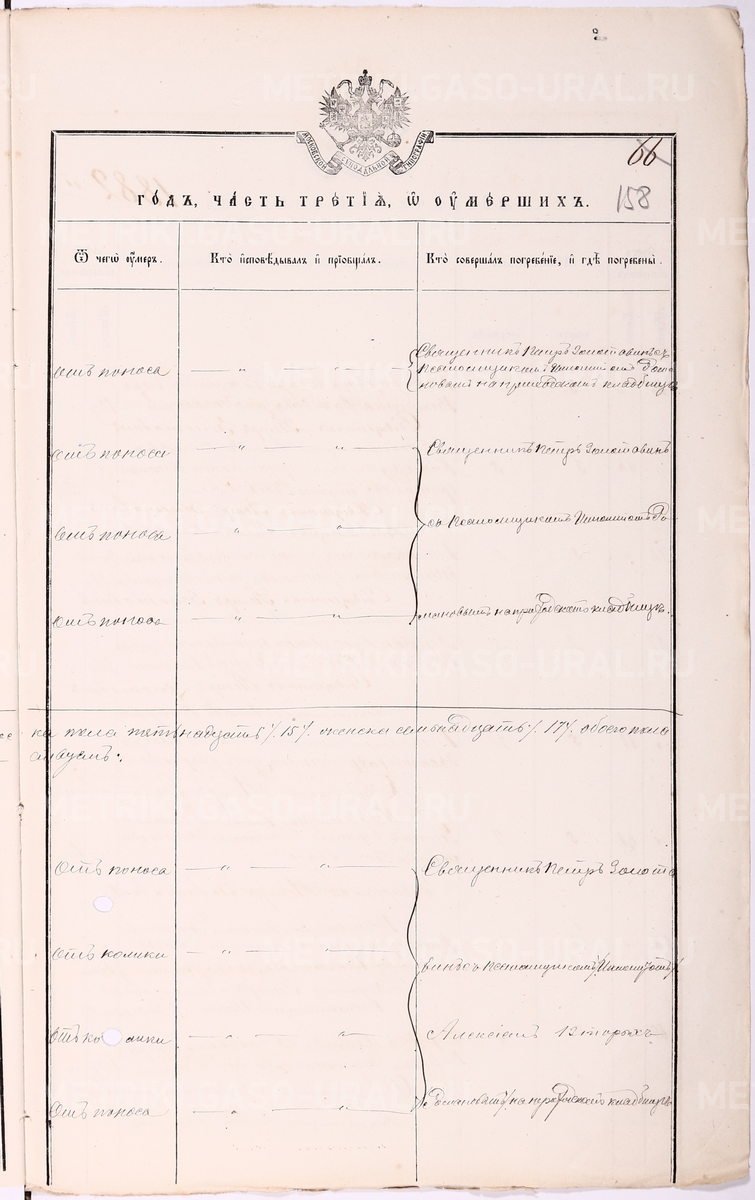 МОСКОВСКОЙ СѴНОДАЛЬНОЙ ТИПОГРАФІИ
66
158
ГО́ДЪ, ЧА́СТЬ ТРЕ́ТІѦ, Ѡ̑ ОУМЕ́РШИХЪ.
Ѿ чегѡ̀ оу́меръ.
Кто̀ и҆сповѣ́дывалъ и҆ прїобща́лъ.
Кто̀ соверша́лъ погребе́нїе, и҆ гдѣ̀ погребены̀.
Отъ поноса — „ — „ — Священникъ Петръ Золотавинъ съ
Псаломщикомъ
новымъ на приходскомъ кладбищѣ
Отъ поноса — „ — „ — Священникъ Петръ Золотавинъ
Отъ поноса — „ — „ — съ Псаломщикомъ Ипполитомъ Ро-
Отъ поноса — „ — „ — мановымъ на приходскомъ кладбищѣ.
ка пола пятьнадцать /. 15 /. женска семьнадцать /. 17 /. обоего пола
Отъ поноса — „ — „ — Священникъ Петръ Золота
Отъ колики — „ — „ — винъ съ Псаломщикомъ /Ипполитомъ/
Отъ ко лики — „ — „ — Алексіемъ 12 вторыхъ
Отъ поноса — „ — „ — /Романовымъ/ на приходскомъ кладбищѣ
METRIKI.GASO-URAL.RU